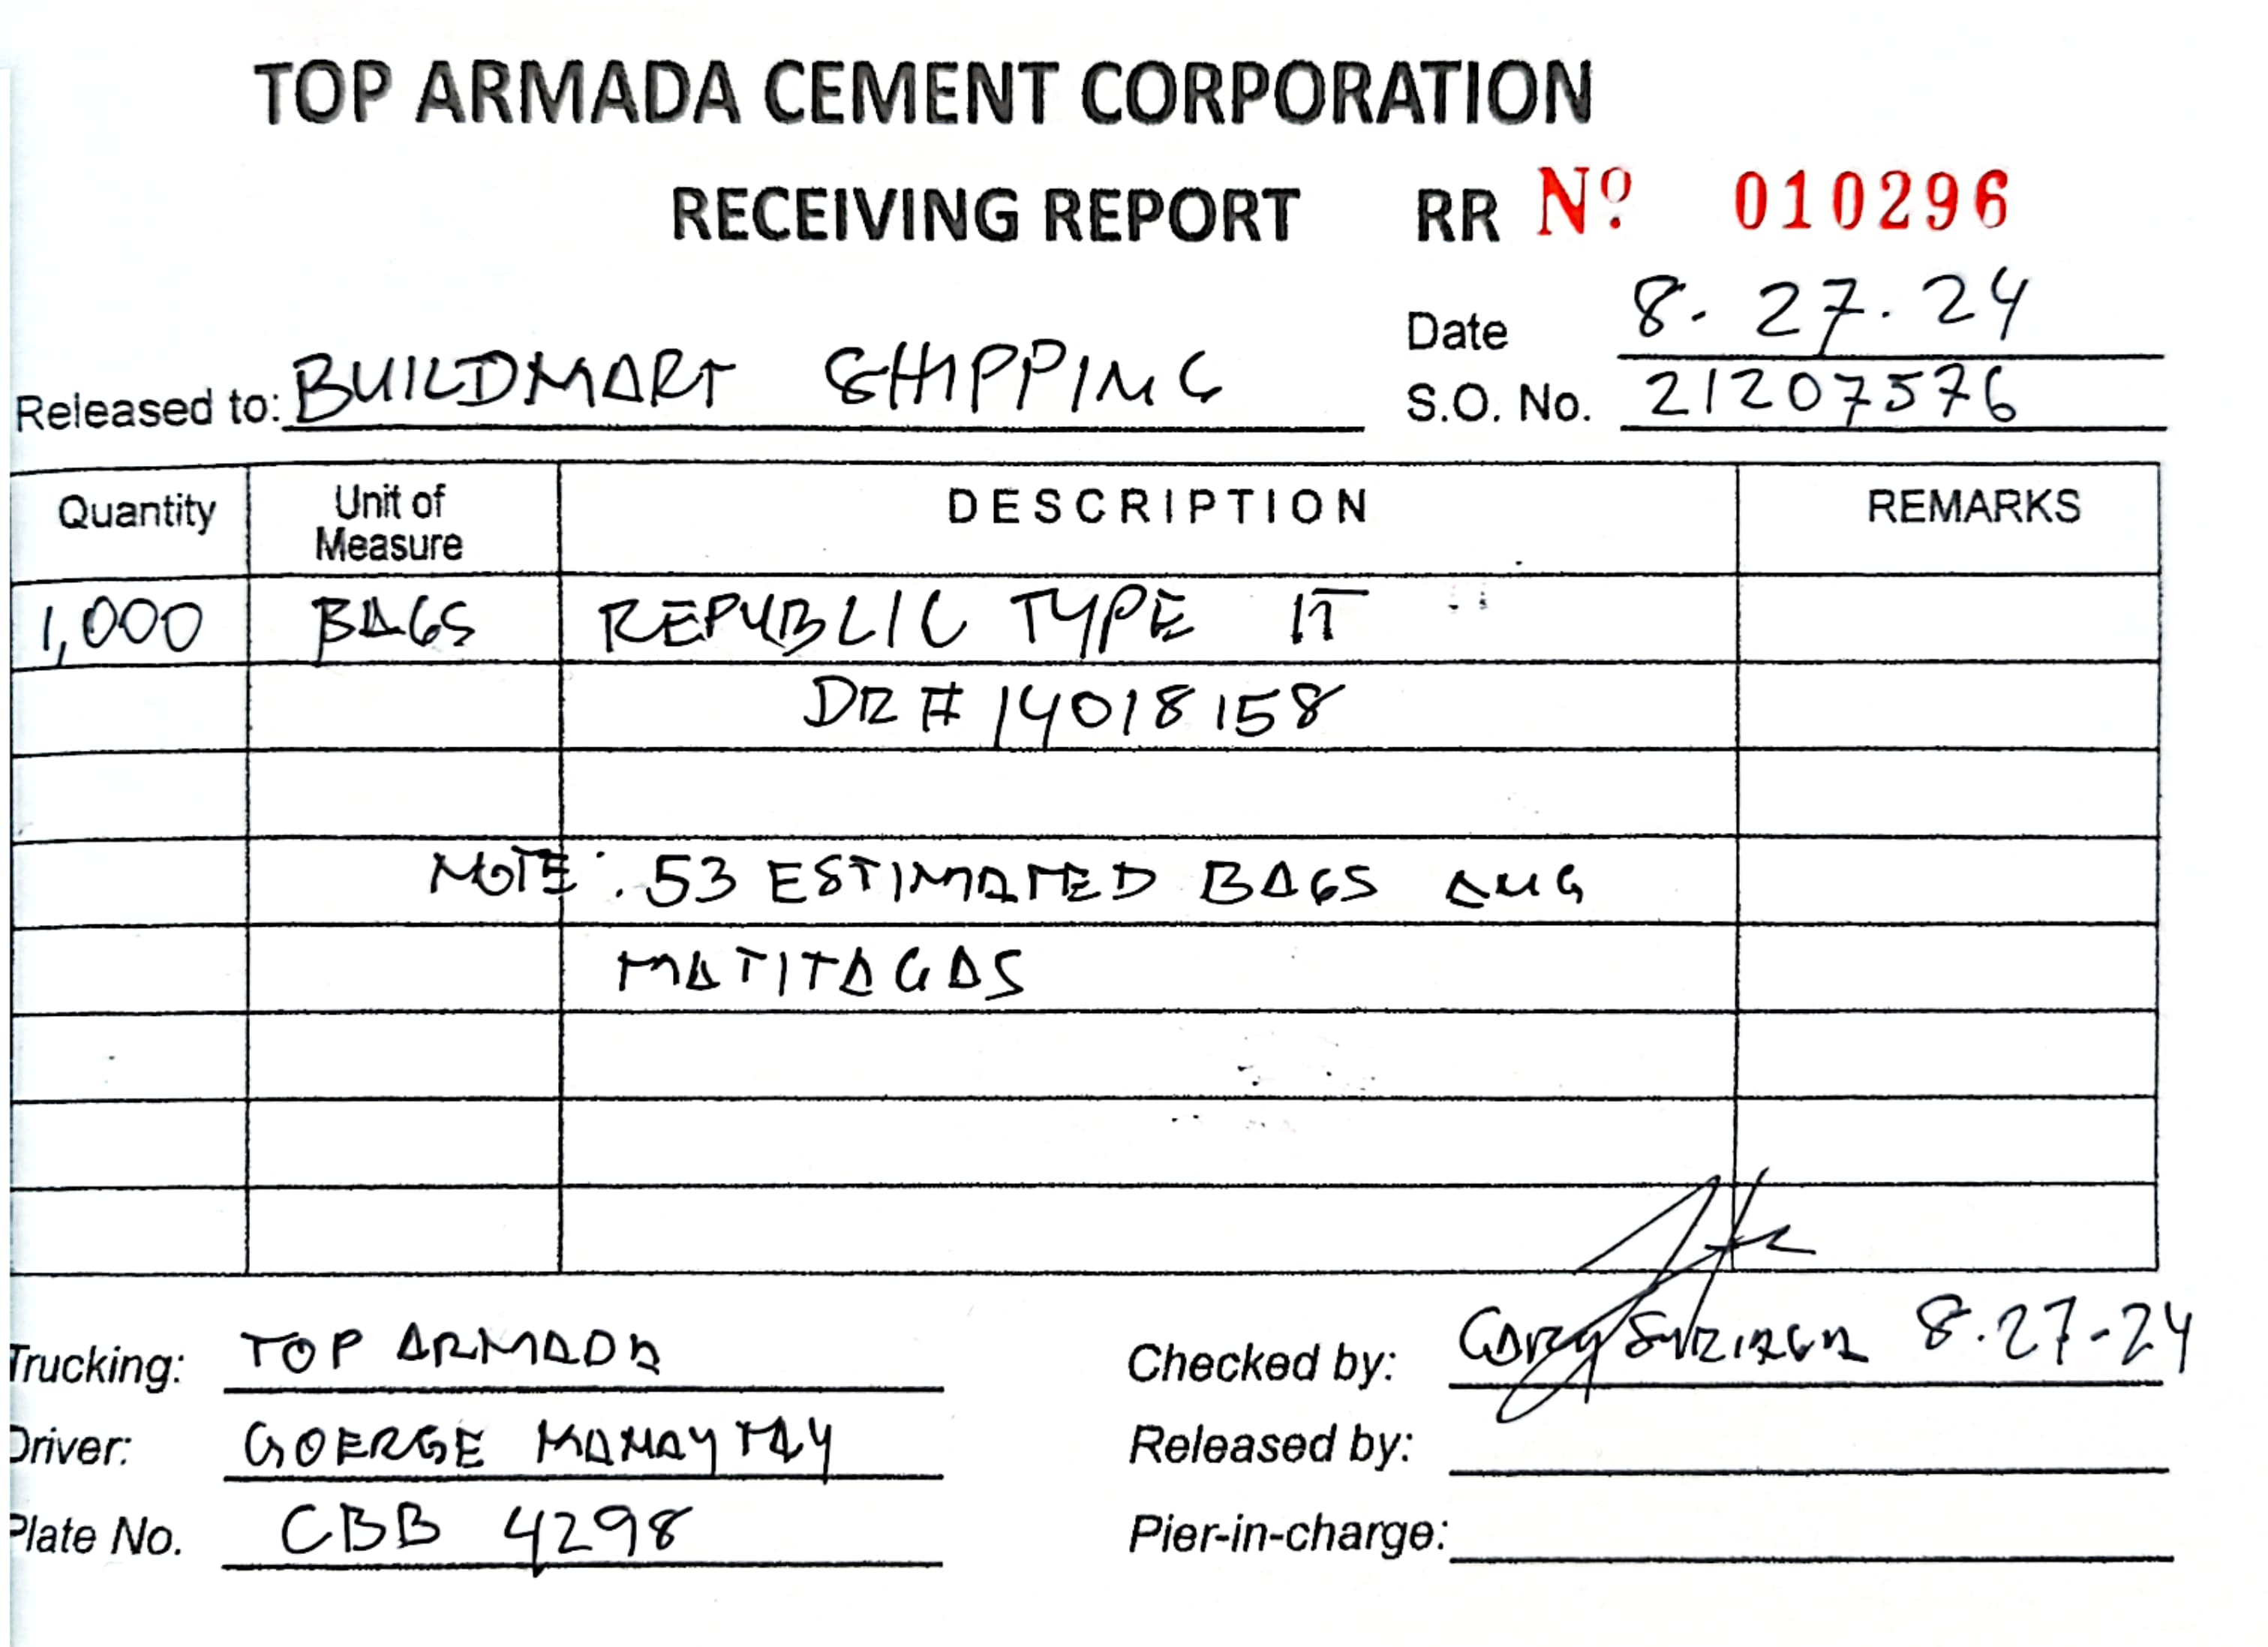 TOP ARMADA CEMENT CORPORATION
RECEIVING REPORT RR Nº 010296
Date 8-27-24
Released to: BUILDMART SHIPPING S.O. No. 21207576
Quantity Unit of Measure DESCRIPTION REMARKS
1,000 BAGS REPUBLIC TYPE 1T
DR # 14018158
NOTE: 53 ESTIMATED BAGS ANG
MATITAGAS
Trucking: TOP ARMADA Checked by: GARY 8-27-24
Driver: GOERGE Released by:
Plate No. CBB 4298 Pier-in-charge: